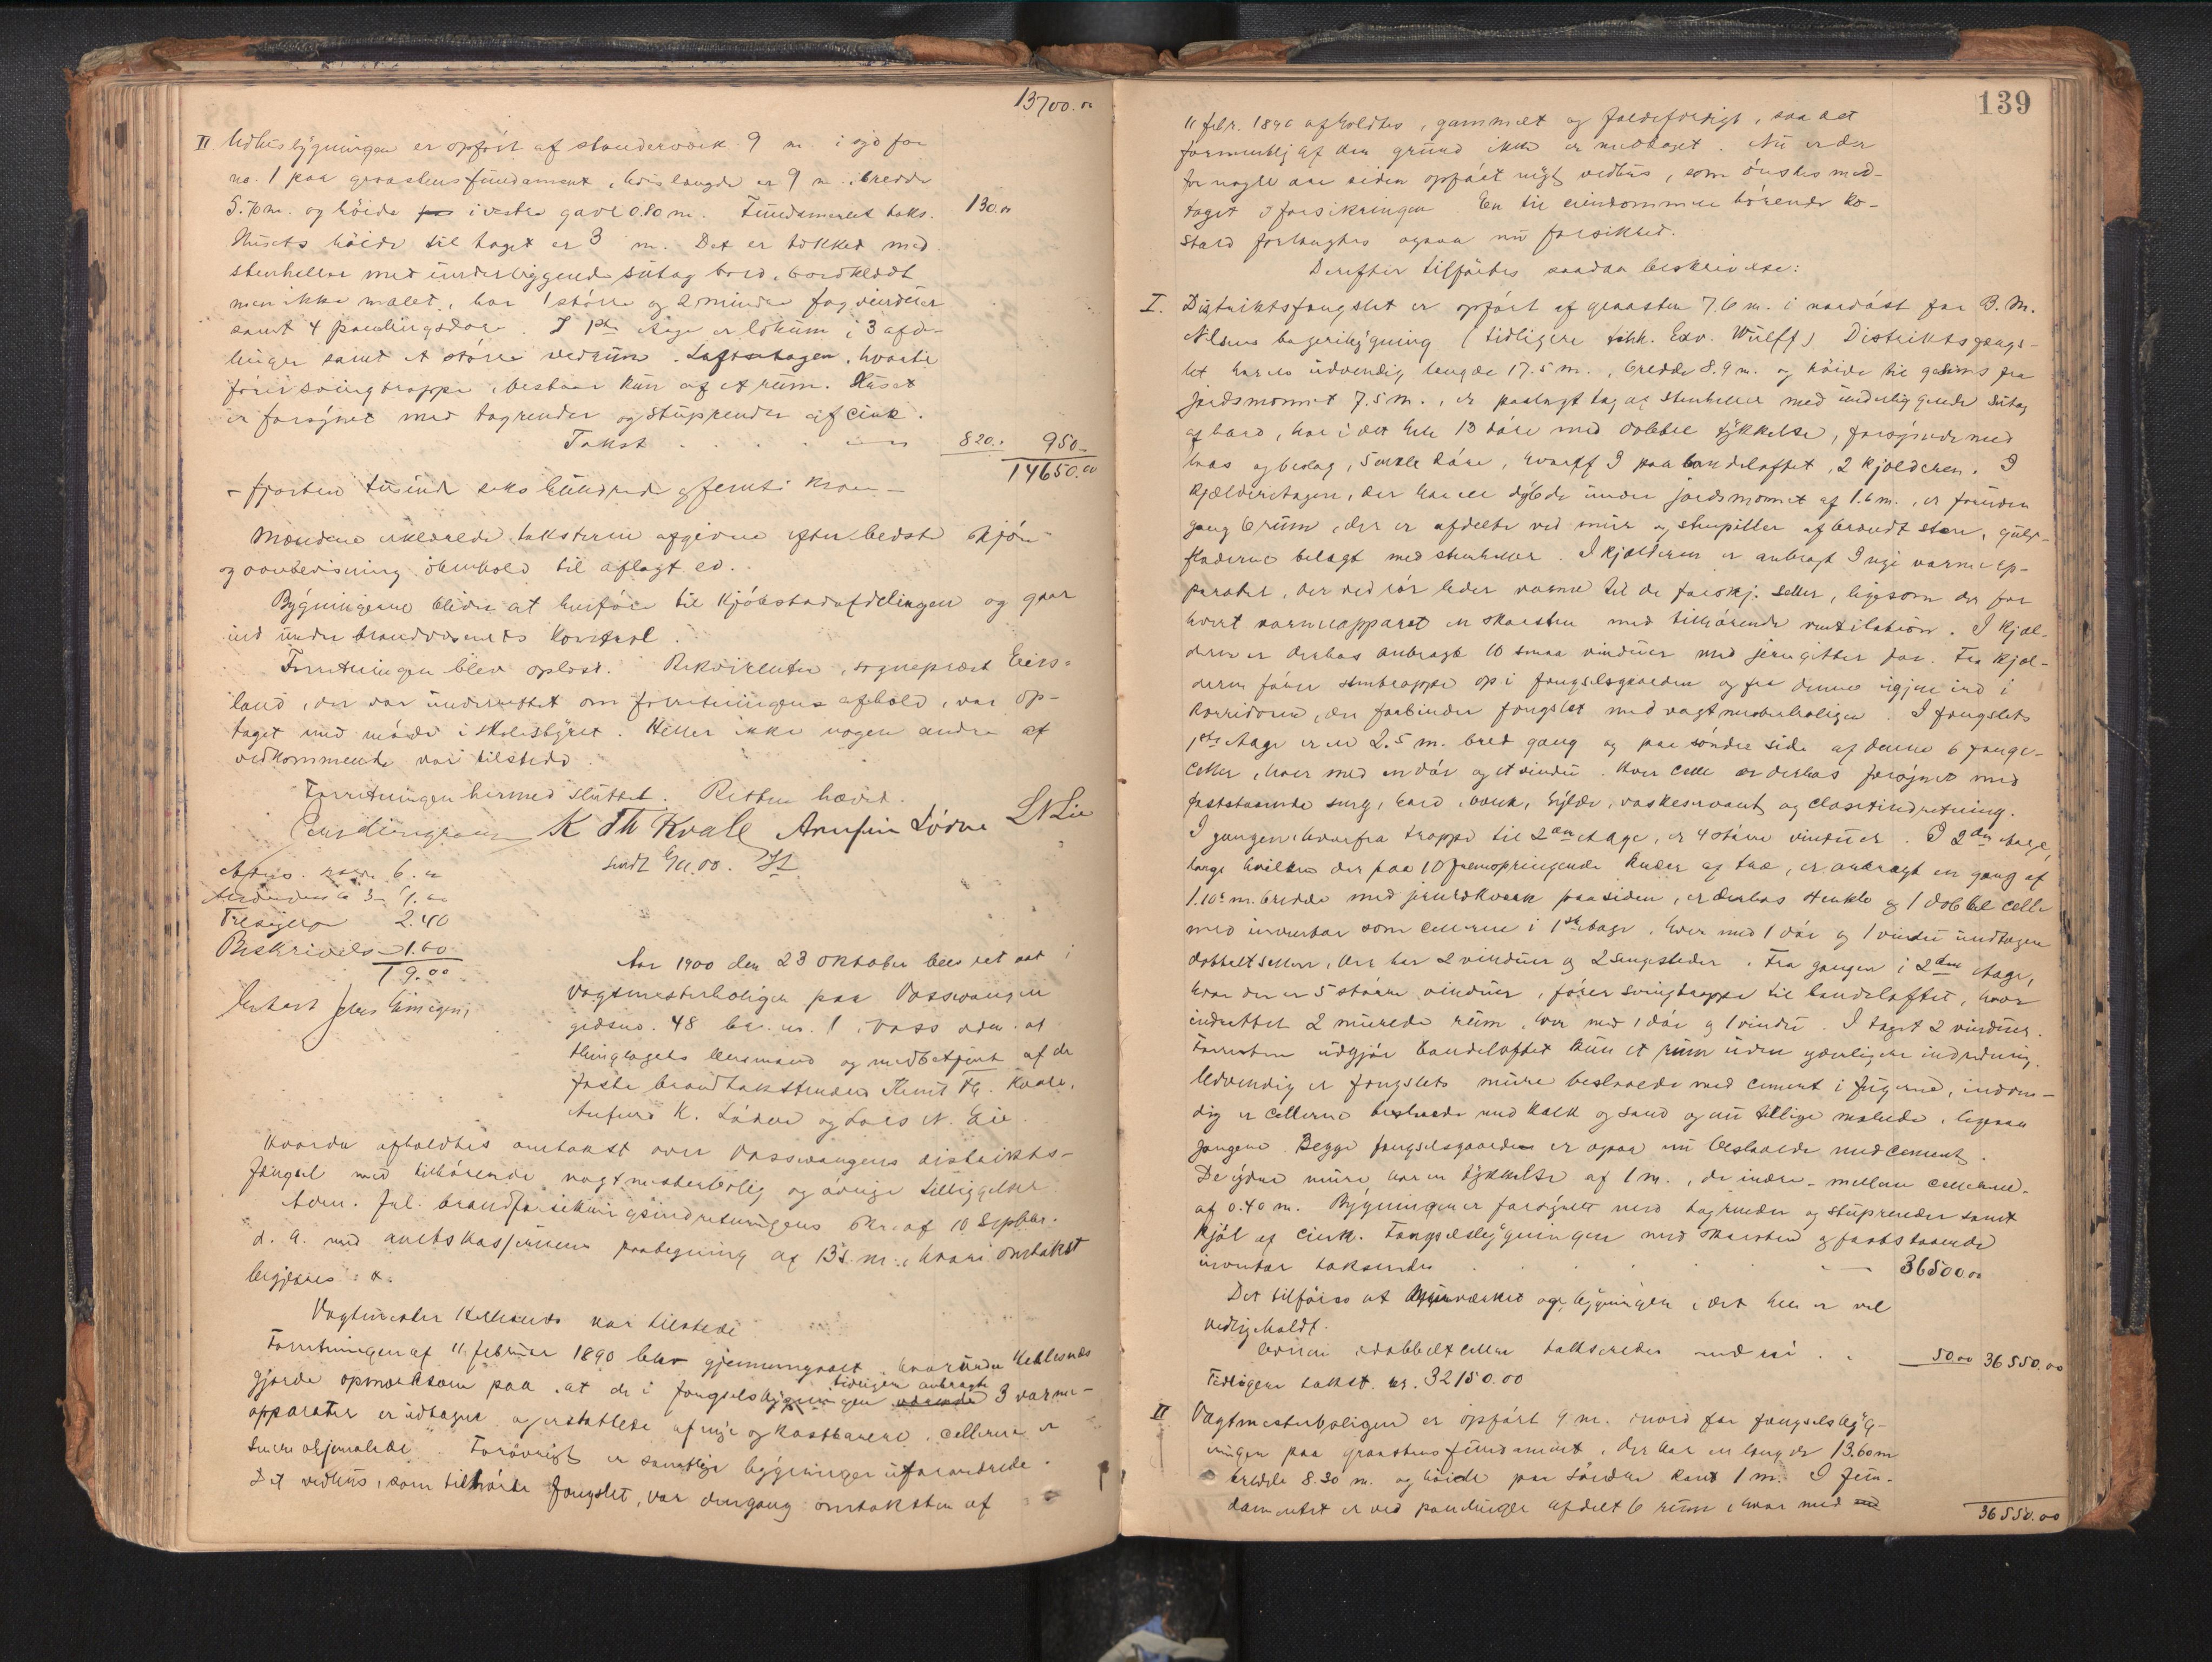 13700.00
II Udhusbygningen er opført af stenderværk 9 m. i syd for
no. 1 paa graastensfundament, hvis længde er 9 m., bredde
5.70 m. og høide i vestre gavl 0.80 m. Fundamentet taks. 130.00
Husets høide til taget er 3 m. Det er tækket med
stenheller med underliggende sutag bord, bordklædt
men ikke malet, har 1 større og 2 mindre fag vinduer
samt 4 panelingsdøre. I 1ste etage er lokum i 3 afde-
linger samt et større vedrum. Loftsetagen, hvortil
fører svingtrappe, bestaar kun af et rum. Huset
er forsynet med tagrender og stuprender af cink.
Takst . . . . 820. 950.-
14650.00
- fjorten tusinde seks hundrede og femti kroner -
Mændene erklærede taksterne afgivne efter bedste skjøn
og overbevisning i henhold til aflagt ed.
Bygningerne bliver at henføre til kjøbstadafdelingen og gaar
ind under brandvæsenets kontrol.
Forretningen blev oplæst. Rekvirenten, sogneprest Eirs-
land, der var underrettet om forretningens afhold, var op-
taget med møde i skolestyret. Heller ikke nogen andre af
vedkommende var tilstede.
Forretningen hermed sluttet. Retten hævet.
K Th Kvale Anfin Lødve LNLie
Sendt 6/11.00.
6.00
Tilsyn 2.40
Beskrivelse 1.60
19.00
Aar 1900 den 23 oktober blev ret sat i
vagtmesterboligen paa Vossevangen
gdsno. 48 br. nr. 1 i Voss adm. af
thinglagets lensmand og medbetjent af de
faste brandtakstmænd Knut Th. Kvale,
Anfin K. Lødve og Lars N. Lie.
Hvorda afholdtes omtakst over Vossevangens distrikts-
fængsel med tilhørende vagtmesterbolig og øvrige tilliggelser.
Adm. frl. brandforsikringsindretningens skr. af 10 septbr.
d. a. med amtskasserens paategning af 13 s. m., hvori omtakst
begjæres: x.
Vagtmester Kellesnes var tilstede.
Forretningen af 11 februar 1890 blev gjennemgaaet, hvorunder Kellesnes
gjorde opmærksom paa, at de i fængselsbygningen tidligere anbragte 3 varme-
apparater er udtagne og erstattede af nye og kostbarere, cellerne er
Forøvrigt er samtlige bygninger uforandrede.
Det vedhus, som tilhørte fængslet, var dengang omtaksten af

139
11 febr. 1890 afholdtes, gammelt og faldefærdigt, saa det
formentlig af den grund ikke er medtaget. Nu er der
for nogle aar siden opført nyt vedhus, som ønskes med-
taget i forsikringen. En til eiendommen hørende ko-
stald forlangtes ogsaa nu forsikret.
Derefter tilførtes saadan beskrivelse:
I. Distriktsfængslet er opført af graasten 7.6 m. i nordøst for B. M.
Nilsens bageribygning (tidligere tilh. Edv. Wulff) Distriktsfængs-
let har en udvendig længde 17.5 m., bredde 8.9 m. og høide til gesims fra
jordsmonnet 7.5 m., er paalagt tag af stenheller med underliggende sutag
af bord, har i det hele 13 døre med dobbel tykkelse, forsynede med
laas og beslag, 5 enkle døre, hvoraf 3 paa bandeloftet, 2 kjælderen. I
kjælderetagen, der har en dybde under jordsmonnet af 1.6 m., er foruden
gang 6 rum, der er afdelte ved mur og stenpiller af brændt sten, gulv-
fladerne belagt med stenheller. I kjælderen er anbragt 3 nye varmeap-
parater, der ved rør leder varme til de forskj. celler, ligesom der for
hvert varmeapparat en skorsten med tilhørende ventilation. I kjæl-
deren er derhos anbragt 10 smaa vinduer med jerngitter for. Fra kjæl-
deren fører stentrappe op i fængselsgaarden og fra denne igjen ind i
korridoren, der forbinder fængslet med vagtmesterboligen. I fængslets
1ste etage er en 2.5 m. bred gang og paa søndre side af denne 6 fange-
celler, hver med en dør og et vindu. Hver celle er derhos forsynet med
faststaaende seng, bord, bænk, hylde, vaskeservant og closetindretning.
I gangen, hvorfra trappe til 2den etage, er 4 større vinduer. I 2den etage,
langs hvilken der paa 10 fremspringende knær af træ, er anbragt en gang af
1.10 m. bredde med jernrækværk paa siden, er derhos 4 enkle og 1 dobbel celle
med inventar som cellerne i 1ste etage, hver med 1 dør og 1 vindu undtagen
dobbeltcellen, der har 2 vinduer og 2 sengesteder. Fra gangen i 2den etage,
hvor der er 5 større vinduer, fører svingtrappe til bandeloftet, hvor
indrettet 2 murede rum, hver med 1 dør og 1 vindu. I taget 2 vinduer.
Forresten udgjør bandeloftet kun et rum uden yderligere indredning.
Udvendig er fængslets mure beslaaede med cement i fugerne, indven-
dig er cellerne beslaaede med kalk og sand og nu tillige malede, ligesaa
gangene. Begge fængselsgaardene er ogsaa nu beslaaede med cement.
De ydre mure har en tykkelse af 1 m., de indre - mellem cellerne -
af 0.40 m. Bygningen er forsynet med tagrender og stuprender samt
kjøl af cink. Fængselsbygningen med skorsten og faststaaende
inventar takseredes . . . . 36500.00
Det tilføies at murværket og bygningen i det hele er vel
vedligeholdt.
dobbeltcellen takseredes med ny . . 50.00 36550.00
Tidligere takst kr. 32150.00
II Vagtmesterboligen er opført 9 m. i nord for fængselsbyg-
ningen paa graastensfundament, der har en længde 13.60 m
bredde 8.30 m. og høide paa søndre kant 1 m. I fun-
damentet er ved panelinger afdelt 6 rum, hvor med
36550.00